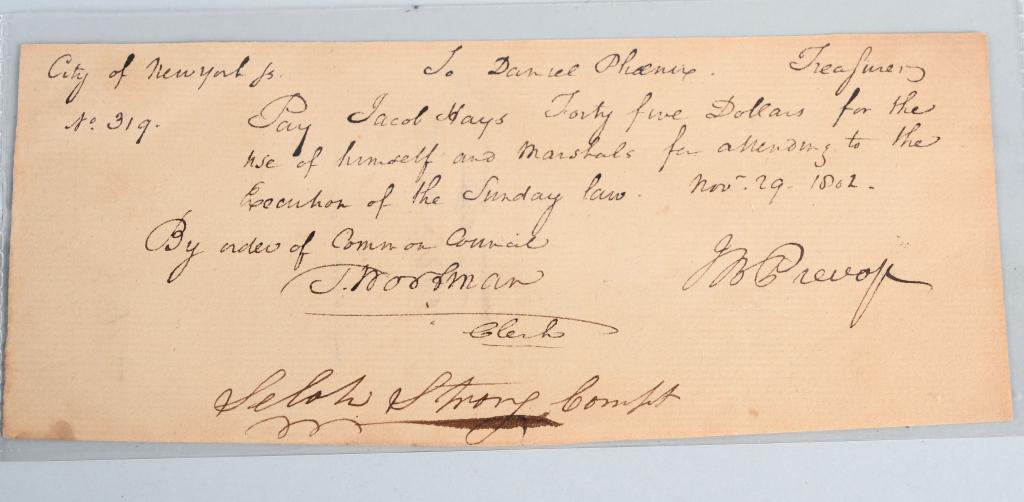 City of New York ss. To Daniel Phœnix. Treasurer
No. 319. Pay Jacob Hays Forty five Dollars for the
use of himself and Marshals for attending to the
Execution of the Sunday law. Novr. 29. 1802.
By order of Common Council
T. Wortman JB Prevost
Clerk
Selah Strong Compt